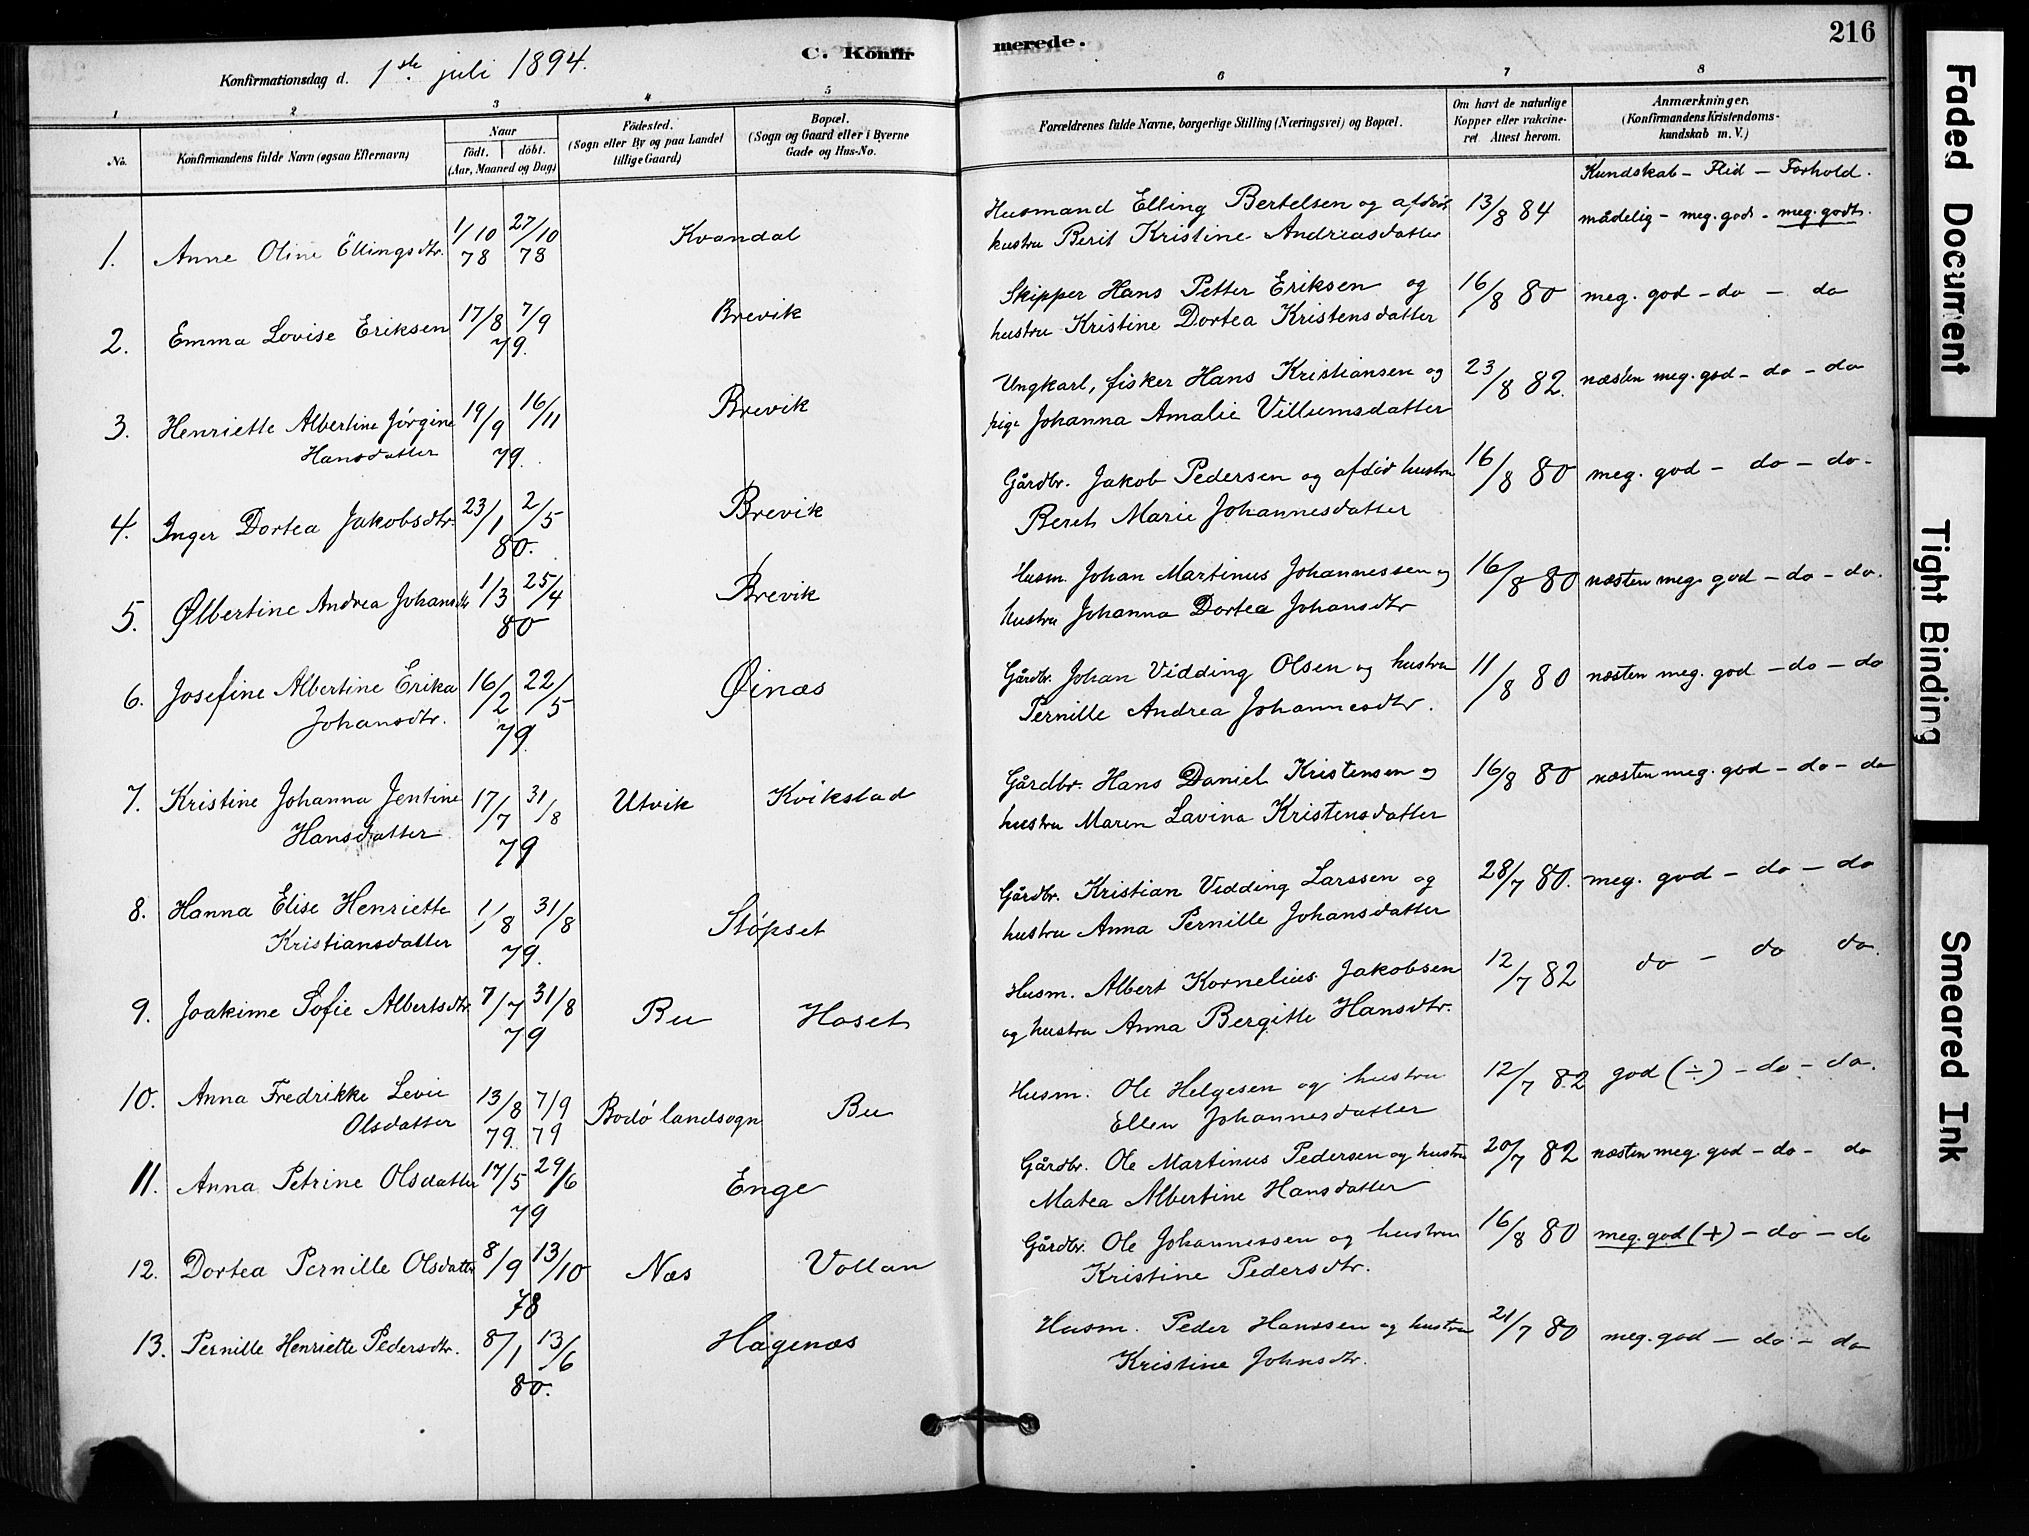 216
C. Konfir
merede.
Konfirmationsdag d. 1ste juli 1894.
1 2 3 4 5 6 7 8
No.
Konfirmandens fulde Navn (ogsaa Efternavn)
Naar
födt. döbt.
(Aar, Maaned og Dag)
Födested.
(Sogn eller By og paa Landet
tillige Gaard)
Bopæl.
(Sogn og Gaard eller i Byerne
Gade og Hus-No.
Forældrenes fulde Navne, borgerlige Stilling (Næringsvei) og Bopæl.
Om havt de naturlige
Kopper eller vakcine-
ret Attest herom.
Anmærkninger.
(Konfirmandens Kristendoms-
kundskab m. V.)
Kundskab - Flid - Forhold.
1. Anne Oline Ellingsdtr. 1/10 78 27/10 78 Kvandal
Husmand Elling Bertelsen og afdød 13/8 84 mådelig - meg. god - meg. godt.
hustru Berit Kristine Andreasdatter
2. Emma Lovise Eriksen 17/8 7/9 79. Brevik
Skipper Hans Petter Eriksen og 16/8 80 meg. god - do - do
hustru Kristine Dortea Kristensdatter
3. Henriette Albertine Jörgine 19/9 16/11 Brevik
Hansdatter 79.
Ungkarl, fisker Hans Kristiansen og 23/8 82. næsten meg. god - do - do
pige Johanna Amalie Villumsdatter
4. Inger Dortea Jakobsdtr. 23/1 2/5 80. Brevik
Gårdbr. Jakob Pedersen og afdød hustru 16/8 80 meg. god - do - do-
Beret Marie Johannesdatter
5. Ølbertine Andrea Johansdtr 1/3 25/4 80 Brevik
Husm. Johan Martinus Johannessen og 16/8 80 næsten meg. god - do - do.
hustru Johanna Dortea Johansdtr
6. Josefine Albertine Erika 16/2 22/5 Øinæs
Johansdtr. 79.
Gårdbr. Johan Vidding Olsen og hustru 11/8 80 næsten meg. god - do - do
Pernille Andrea Johannesdtr.
7. Kristine Johanna Jentine 17/7 31/8 Utvik Kvikstad
Hansdatter 79
Gårdbr. Hans Daniel Kristensen og 16/8 80 næsten meg. god - do - do
hustru Maren Lavina Kristensdatter
8. Hanna Elise Henriette 1/8 31/8 Støpset
Kristiansdatter 79.
Gårdbr. Kristian Vidding Larssen og 28/7 80. meg. god - do - do
hustru Anna Pernille Johansdatter
9. Joakime Sofie Albertsdtr. 7/7 31/8 79 Bu Hoset
Husm. Albert Kornelius Jakobsen 12/7 82 do - do do.
og hustru Anna Bergitte Hansdtr.
10. Anna Fredrikke Levie 13/8 79. 7/9 79 Bodö landsogn Bu
Olsdatter
Husm. Ole Helgesen og hustru 12/7 82 god (÷) - do - do.
Ellen Johannesdatter
11. Anna Petrine Olsdatter 17/5 29/6 79 Enge
Gårdbr. Ole Martinus Pedersen og hustru 20/7 82 næsten meg. god - do - do
Matea Albertine Hansdatter
12. Dortea Pernille Olsdatter 8/9 13/10 78 Næs Vollan
Gårdbr. Ole Johannessen og hustru 16/8 80 meg. god (+) - do - do
Kristine Pedersdtr.
13. Pernille Henriette Pedersdtr. 8/1 13/6 80. Hagenæs
Husm. Peder Hanssen og hustru 21/7 80 meg. god - do - do
Kristine Johnsdtr.
Faded Document
Tight Binding
Smeared Ink